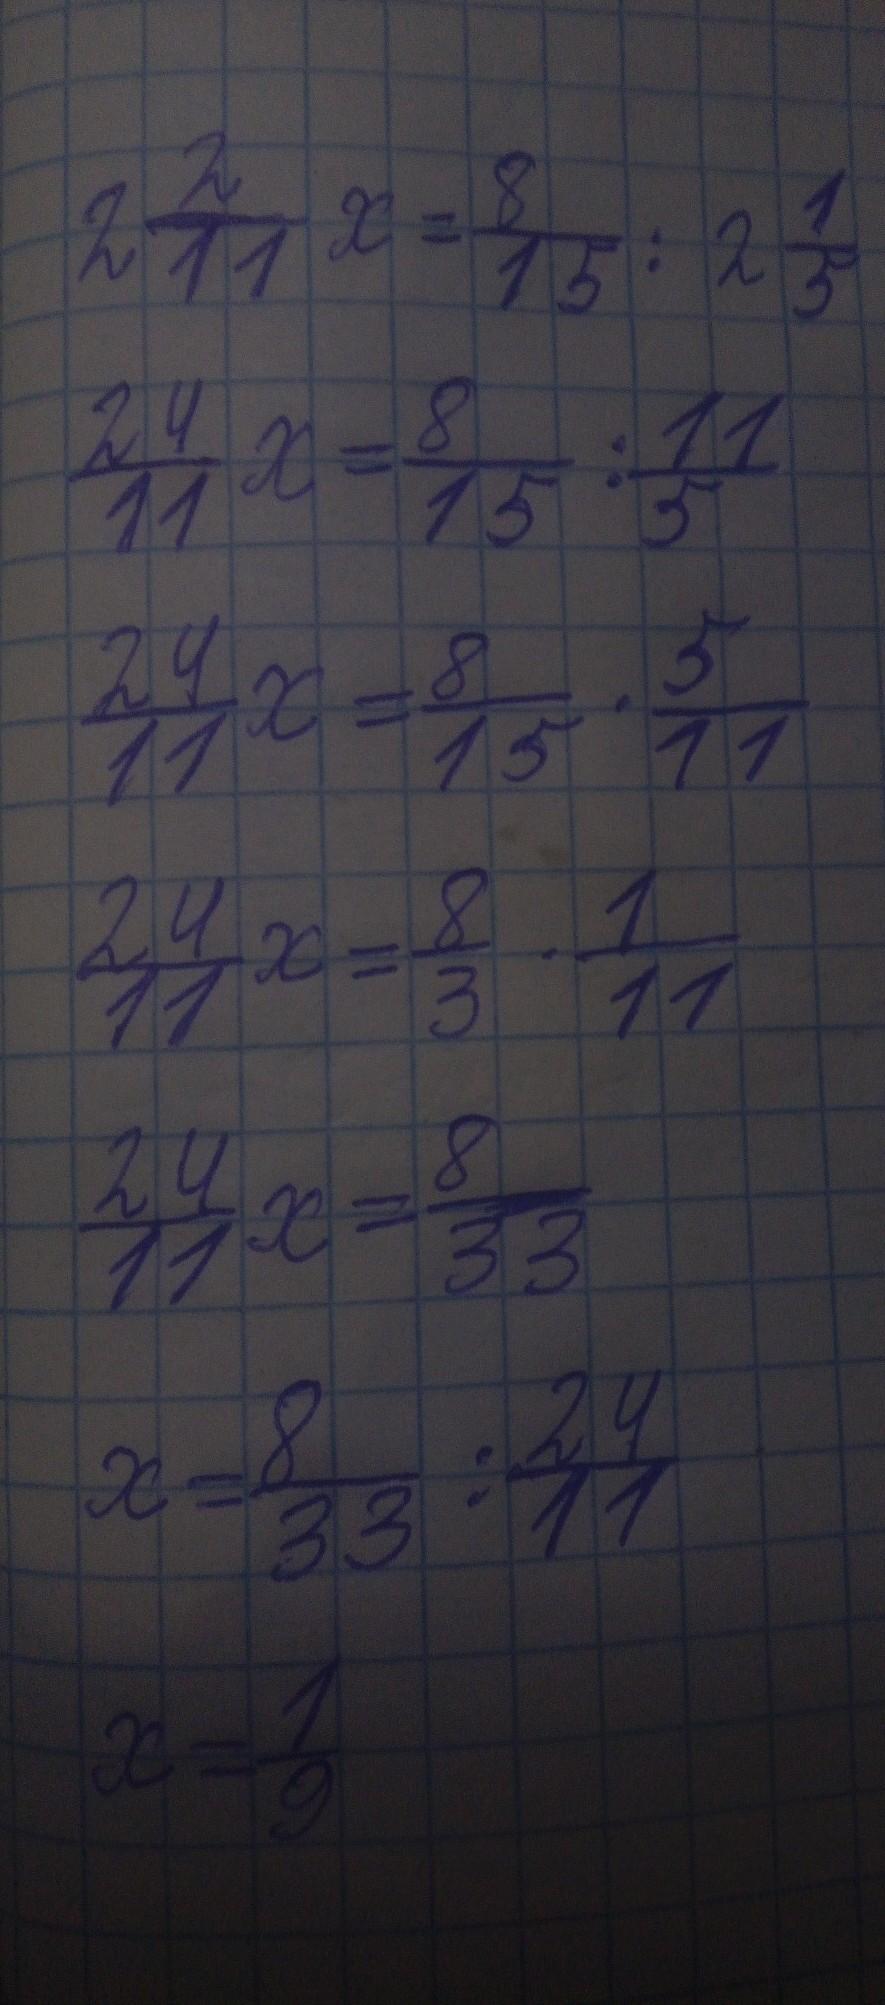 2 2/11 x = 8/15 : 2 1/5
24/11 x = 8/15 : 11/5
24/11 x = 8/15 · 5/11
24/11 x = 8/3 · 1/11
24/11 x = 8/33
x = 8/33 : 24/11
x = 1/9